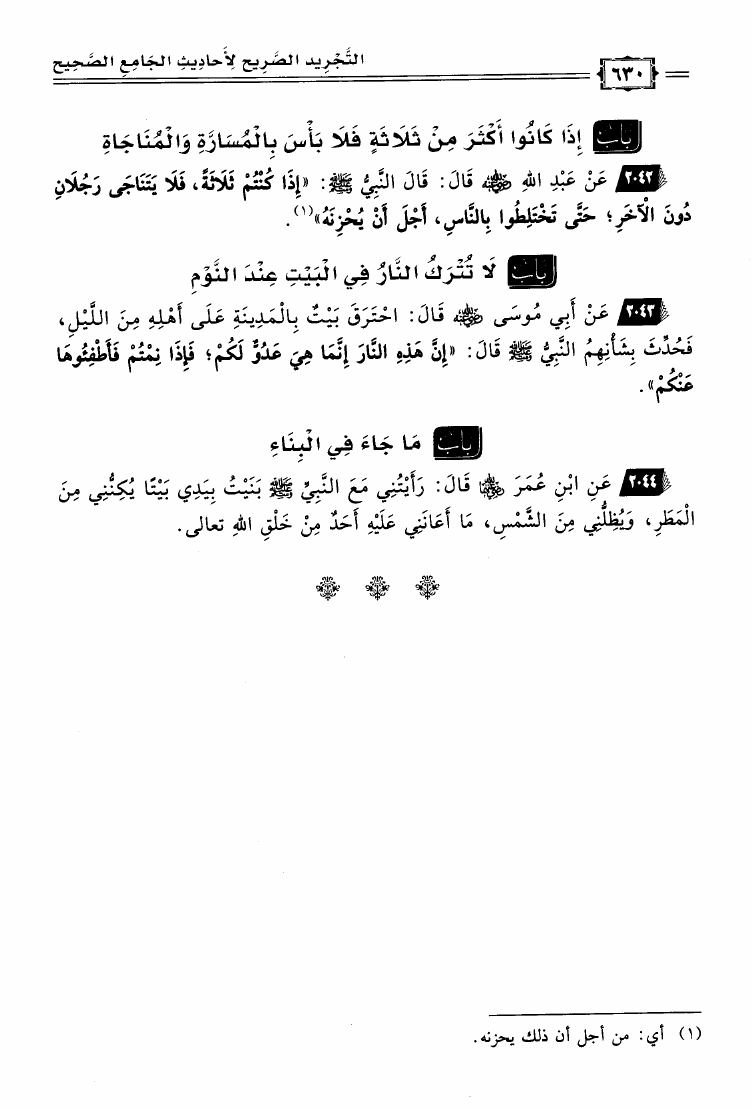 التَّجْرِيد الصَّرِيح لِأَحادِيثِ الجَامِع الصَّحِيح
٦٣٠
باب إِذَا كَانُوا أَكْثَرَ مِنْ ثَلَاثَةٍ فَلَا بَأْسَ بِالْمُسَارَّةِ وَالْمُنَاجَاةِ
٢٠٤٢ عَنْ عَبْدِ اللهِ رضي الله عنه قَالَ: قَالَ النَّبِيُّ ﷺ: «إِذَا كُنْتُمْ ثَلَاثَةً، فَلَا يَتَنَاجَى رَجُلَانِ
دُونَ الْآخَرِ؛ حَتَّى تَخْتَلِطُوا بِالنَّاسِ، أَجْلَ أَنْ يُحْزِنَهُ»(١).
باب لَا تُتْرَكُ النَّارُ فِي الْبَيْتِ عِنْدَ النَّوْمِ
٢٠٤٣ عَنْ أَبِي مُوسَى رضي الله عنه قَالَ: احْتَرَقَ بَيْتٌ بِالْمَدِينَةِ عَلَى أَهْلِهِ مِنَ اللَّيْلِ،
فَحُدِّثَ بِشَأْنِهِمُ النَّبِيُّ ﷺ قَالَ: «إِنَّ هَذِهِ النَّارَ إِنَّمَا هِيَ عَدُوٌّ لَكُمْ؛ فَإِذَا نِمْتُمْ فَأَطْفِئُوهَا
عَنْكُمْ».
باب مَا جَاءَ فِي الْبِنَاءِ
٢٠٤٤ عَنِ ابْنِ عُمَرَ رضي الله عنهما قَالَ: رَأَيْتُنِي مَعَ النَّبِيِّ ﷺ بَنَيْتُ بِيَدِي بَيْتًا يُكِنُّنِي مِنَ
الْمَطَرِ، وَيُظِلُّنِي مِنَ الشَّمْسِ، مَا أَعَانَنِي عَلَيْهِ أَحَدٌ مِنْ خَلْقِ اللهِ تعالى.
(١) أي: من أجل أن ذلك يحزنه.